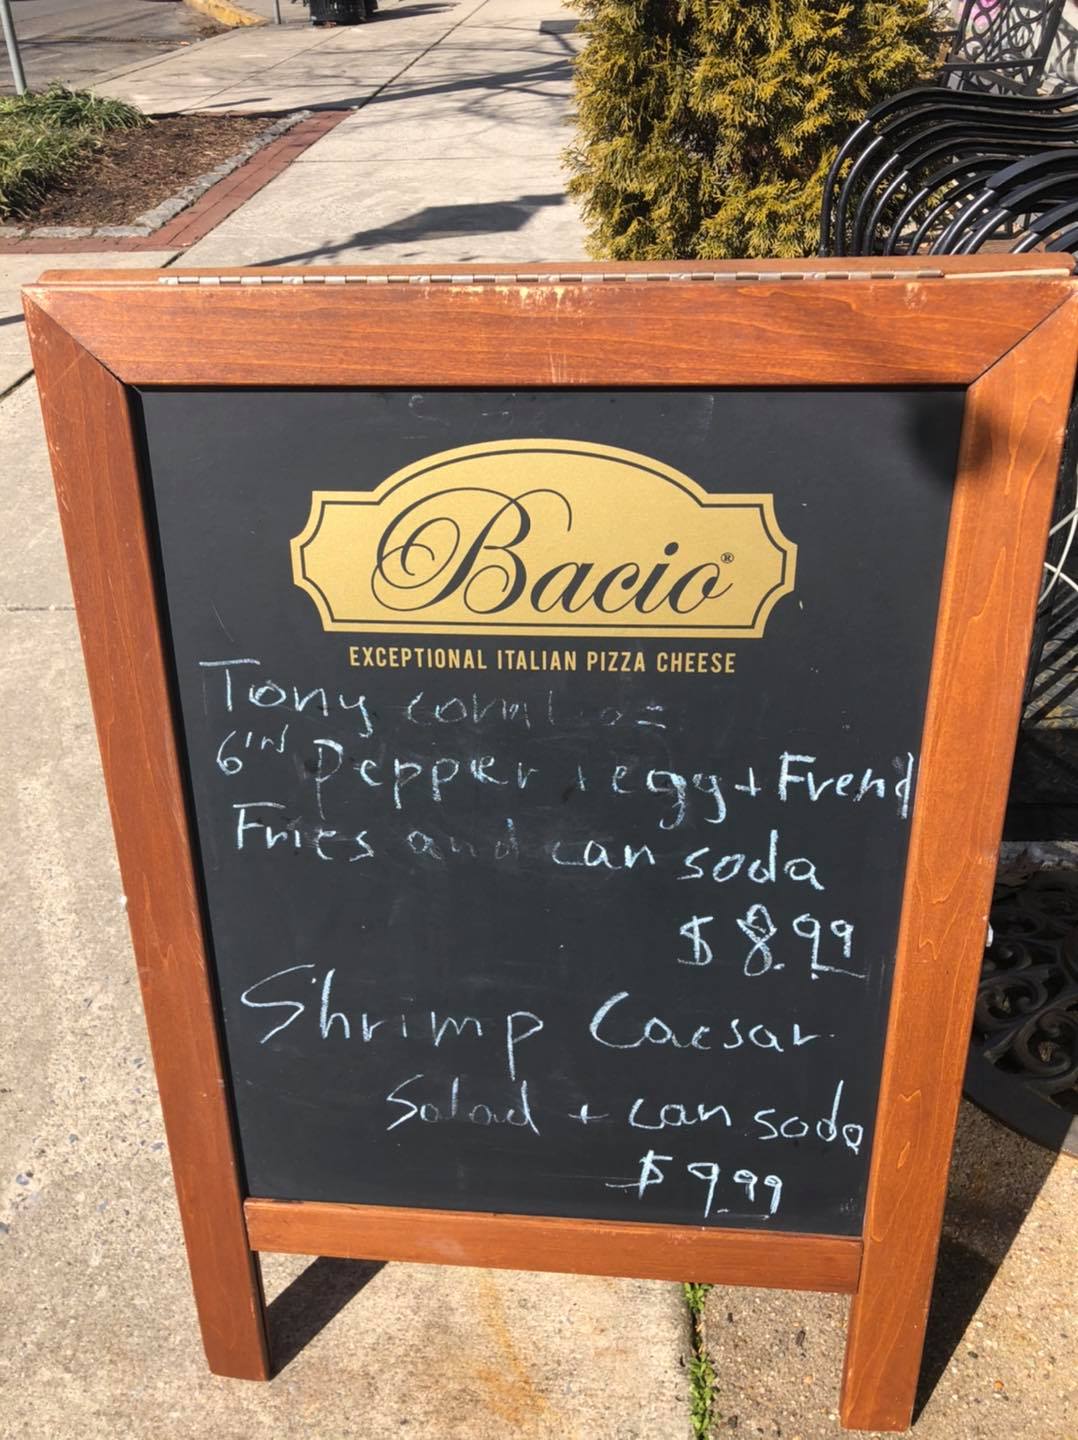 Bacio®
EXCEPTIONAL ITALIAN PIZZA CHEESE
Tony combo=
6IN pepper + egg + Frend
Fries and can soda
$ 8.99
Shrimp Caesar
Salad + can soda
$ 9.99